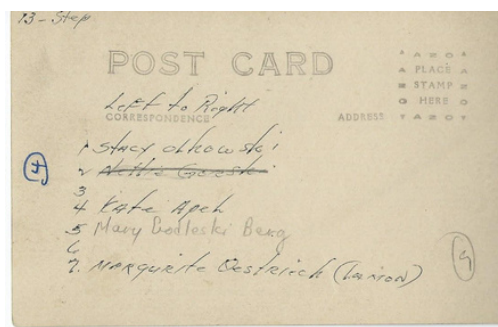 13 - Step
POST CARD
AZO
PLACE
STAMP
HERE
AZO
Left to Right
CORRESPONDENCE
ADDRESS
1 Stacy Olkowski
2 Nettie Goreski
3
4 Kate Apeh
5 Mary Godleski Berg
6
7. Margurite Oestrich (Laxton)
4
9